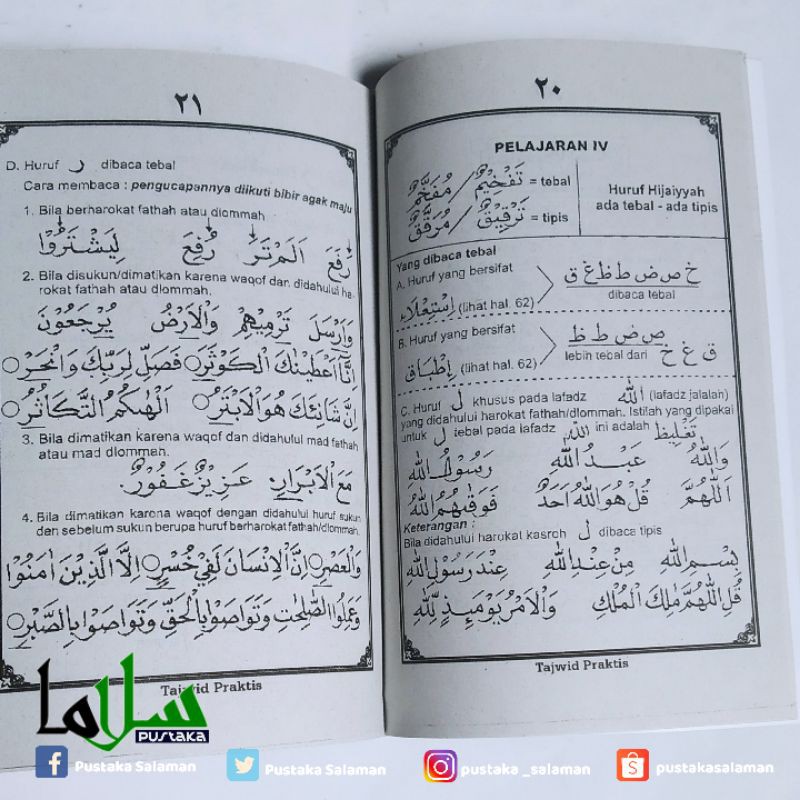 ٢٠
PELAJARAN IV
تَفْخِيْمٌ / مُفَخَّمٌ = tebal
تَرْقِيْقٌ / مُرَقَّقٌ = tipis
Huruf Hijaiyyah
ada tebal - ada tipis
Yang dibaca tebal
A. Huruf yang bersifat
اِسْتِعْلَاء (lihat hal. 62)
خ ص ض ط ظ غ ق
dibaca tebal
B. Huruf yang bersifat
اِطْبَاق (lihat hal. 62)
ص ض ط ظ
lebih tebal dari ق غ خ
C. Huruf ل khusus pada lafadz الله (lafadz jalalah)
yang didahului harokat fathah/dlommah. Istilah yang dipakai
untuk ل tebal pada lafadz الله ini adalah تَغْلِيظ
وَاللهُ عَبْدُ اللهِ رَسُوْلُ اللهِ
اَللّٰهُمَّ قُلْ هُوَ اللهُ اَحَدٌ فَوَقٰىهُمُ اللهُ
Keterangan :
Bila didahului harokat kasroh ل dibaca tipis
بِسْمِ اللهِ مِنْ عِنْدِ اللهِ عِنْدَ رَسُوْلِ اللهِ
قُلِ اللّٰهُمَّ مٰلِكَ الْمُلْكِ وَالْاَمْرُ يَوْمَىِٕذٍ لِلّٰهِ
Tajwid Praktis
٢١
D. Huruf ر dibaca tebal
Cara membaca : pengucapannya diikuti bibir agak maju
1. Bila berharokat fathah atau dlommah
رَفَعَ رُفِعَ اَلَمْ تَرَ لِيَشْتَرُوْا
2. Bila disukun/dimatikan karena waqof dan didahului ha-
rokat fathah atau dlommah.
وَاَرْسَلَ تَرْمِيْهِمْ وَالْاَرْضُ يُرْجَعُوْنَ
اِنَّآ اَعْطَيْنٰكَ الْكَوْثَرَ فَصَلِّ لِرَبِّكَ وَانْحَرْ
اِنَّ شَانِئَكَ هُوَ الْاَبْتَرُ اَلْهٰىكُمُ التَّكَاثُرُ
3. Bila dimatikan karena waqof dan didahului mad fathah
atau mad dlommah.
مَعَ الْاَبْرَارِ عَزِيْزٌ غَفُوْرٌ
4. Bila dimatikan karena waqof dengan didahului huruf sukun
dan sebelum sukun berupa huruf berharokat fathah/dlommah.
وَالْعَصْرِ اِنَّ الْاِنْسَانَ لَفِيْ خُسْرٍ اِلَّا الَّذِيْنَ اٰمَنُوْا
وَعَمِلُوا الصّٰلِحٰتِ وَتَوَاصَوْا بِالْحَقِّ وَتَوَاصَوْا بِالصَّبْرِ
Tajwid Praktis
سلاما
PUSTAKA
Pustaka Salaman
Pustaka Salaman
pustaka _salaman
pustakasalaman